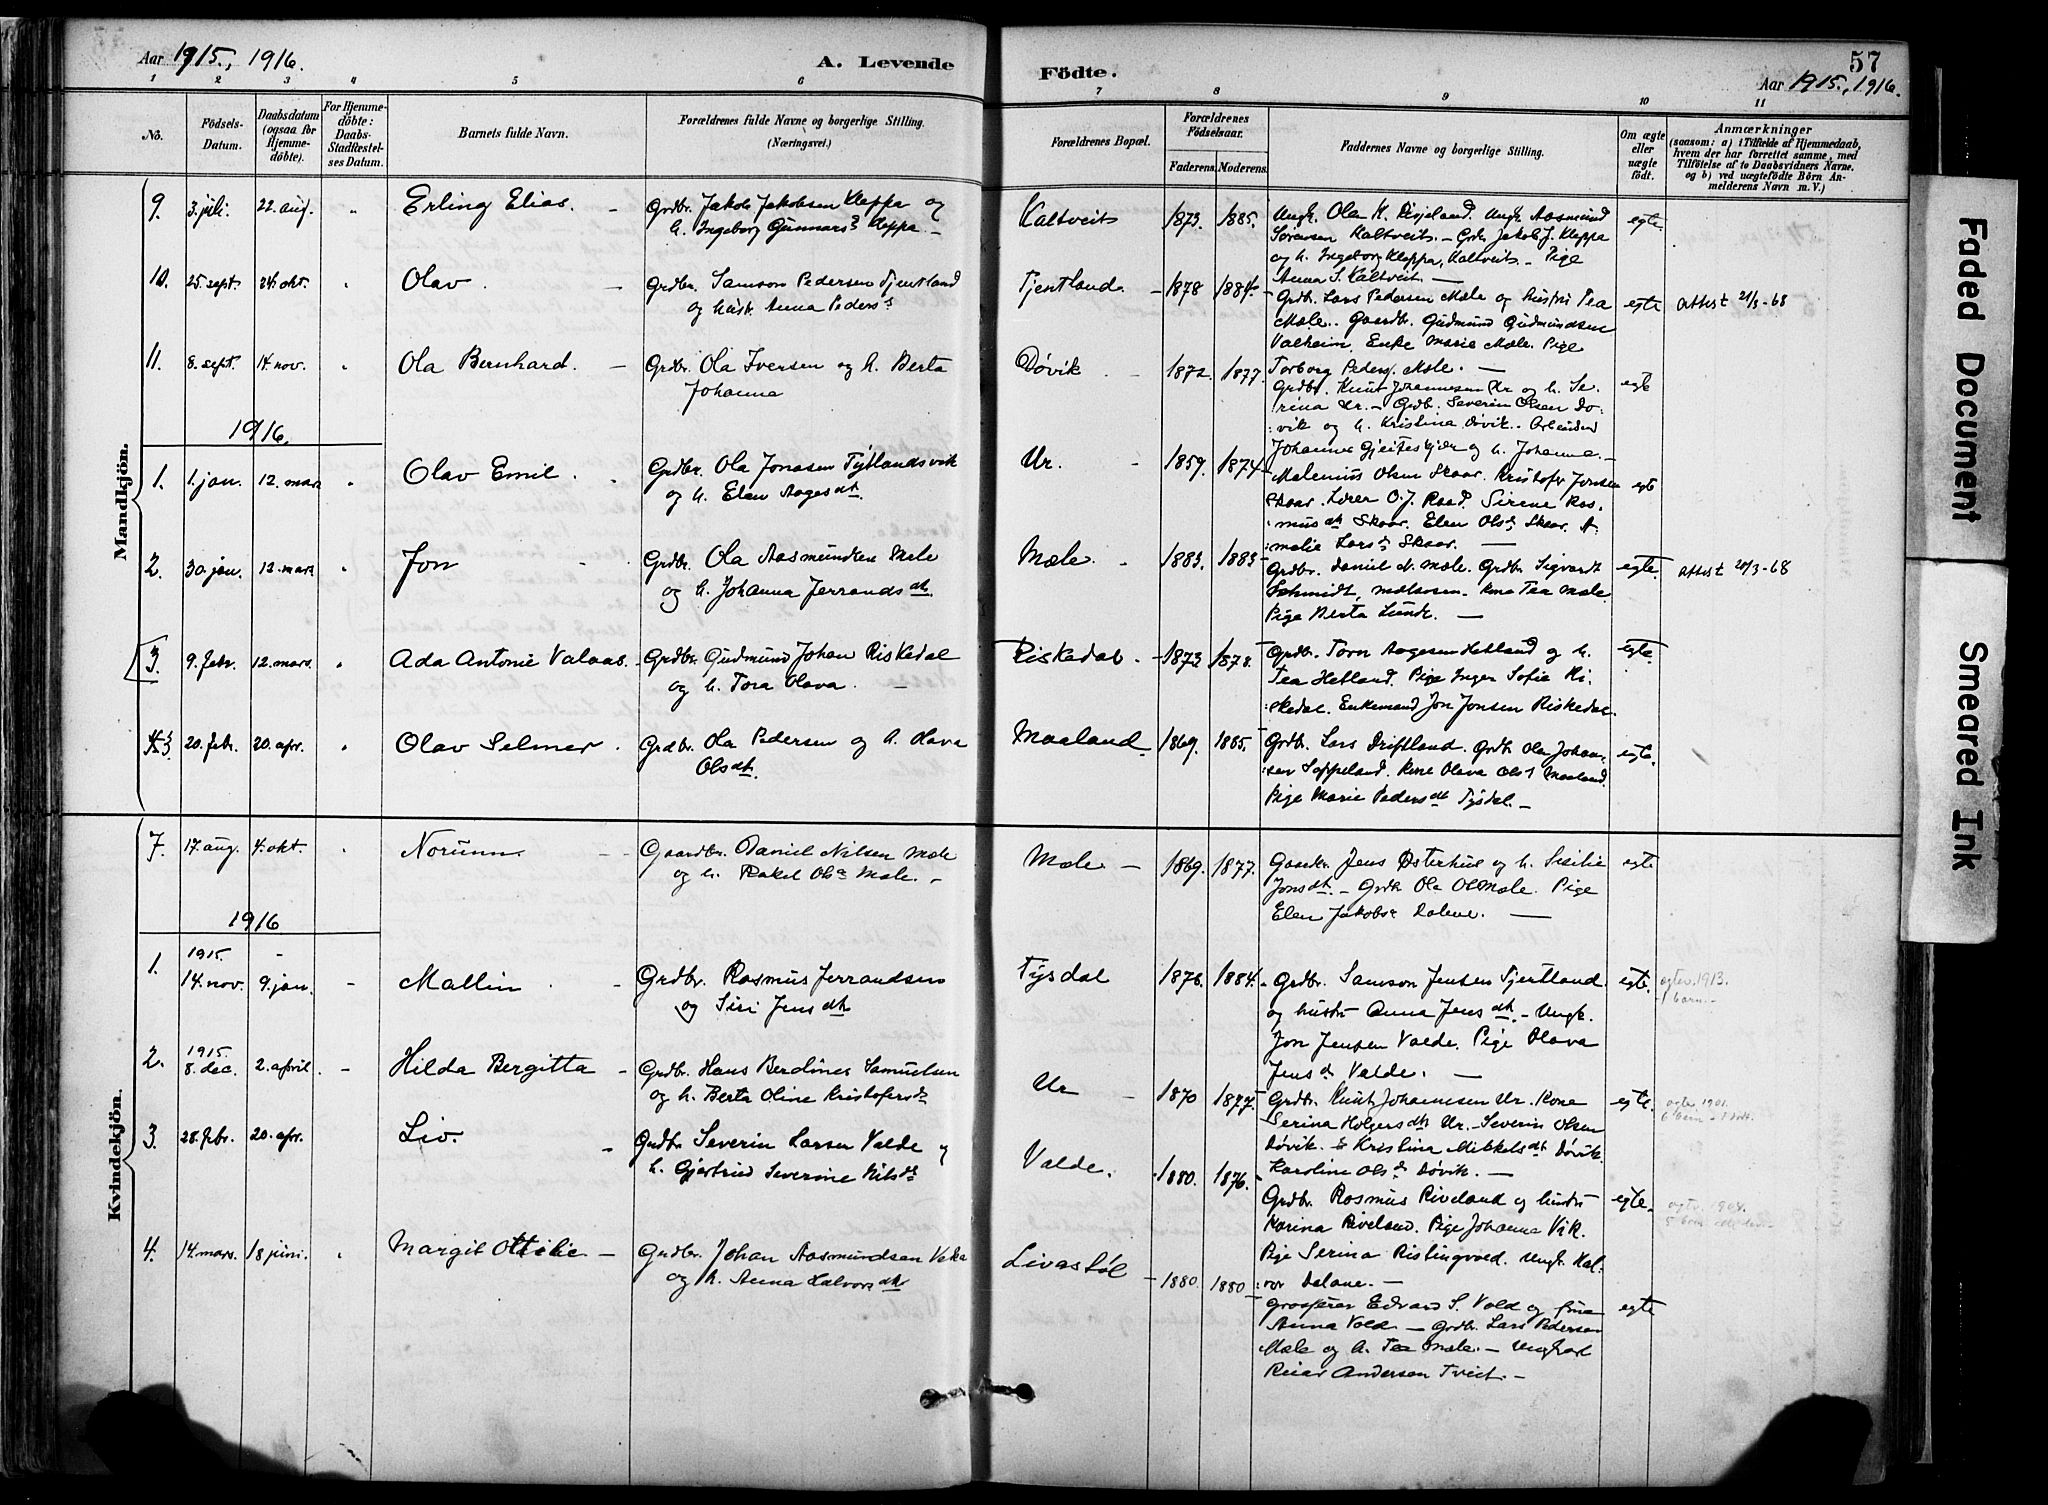 Aar 1915, 1916.
A. Levende
Födte.
57
Aar 1915, 1916.
1 2 3 4 5 6 7 8 9 10 11
No.
Födsels-
Datum.
Daabsdatum
(ogsaa for
Hjemme-
döbte).
For Hjemme-
döbte:
Daabs-
Stadfæstel-
ses Datum.
Barnets fulde Navn.
Forældrenes fulde Navne og borgerlige Stilling.
(Næringsvei.)
Forældrenes Bopæl.
Forældrenes
Födselsaar.
Faderens. Moderens.
Faddernes Navne og borgerlige Stilling.
Om ægte
eller
uægte
født.
Anmærkninger
(saasom: a) i Tilfælde af Hjemmedaab,
hvem der har forrettet samme, med
Tilföielse af to Daabsvidners Navne.
og b) ved uægtefödte Börn An-
melderens Navn m. V.)
Mandkjön.
9. 3. juli. 22. aug. " Erling Elias. Grdbr. Jakob Jakobsen Kleppa og
h. Ingeborg Gunnars. Kleppa
Kaltveit 1873. 1885. Ungk. Ola K. Ungk. Aasmund
Sørensen Kaltveit. Grdbr. Jakob J. Kleppa
og h. Ingeborg Kleppa, Kaltveit. Pige
Anna S. Kaltveit
egte
10. 25. sept. 24. okt. " Olav Grdbr. Samson Pedersen Tjentland
og hustr. Anna Peders
Tjentland 1878 1884. Grdbr. Lars Pedersen Mæle og hustru Tea
Mæle. Gaardbr. Gudmund Gudmundsen
Valheim. Enke Marie Mæle. Pige
Torborg Peders. Mæle.
egte Attest 21/3-68
11. 8. sept. 14. nov. " Ola Bernhard. Grdbr. Ola Iversen og h. Berta
Johanna
Døvik 1872. 1877. Grdbr. Knut Johannesen Ur og h. Se-
rina Ur. Grdbr. Severin Olsen Dø-
vik og h. Kristina Døvik. Arbeider
Johannes og h. Johanna.
egte
1916.
1. 1. jan. 12. mars " Olav Emil. Grdbr. Ola Jonasen Tytlandsvik
og h. Elen Aagesdt.
Ur. 1859. 1874 Malenius Olsen Skaar. Kristofer Jonsen
Skaar. Lærer O. J. Raad. Sirene Ras-
musdt Skaar. Elen Ols. Skaar. A-
malie Lars. Skaar.
egte
2. 30. jan. 12. mars " Jon Grdbr. Ola Aasmundsen Mæle
og h. Johanna Jerrandsdt.
Mæle. 1883. 1883 Grdbr. Daniel N. Mæle. Grdbr. Sigvart
Schmidt, Kone Tea Mæle.
Pige Berta Lunde.
egte. Attest 20/3-68
3. 9. febr. 12. mars. " Ada Antonie Valaas. Grdbr. Gudmund Johan Riskedal
og h. Tora Olava.
Riskedal. 1873 1878. Grdbr. Torn Aagesen Hetland og h.
Tea Hetland. Pige Inger Sofie Ri-
skedal. Enkemand Jon Jonsen Riskedal.
egte.
4 3 20. febr. 20. apr. " Olav Selmer. Grdbr. Ola Pedersen og h. Olava
Olsdt.
Maaland. 1869. 1885. Grdbr. Lars Driftland. Grdbr. Ola Johan-
sen Soppeland. Kone Olava Ols. Maaland.
Pige Marie Pedersdt Tysdal.
egte.
Kvindekjön.
7. 17. aug. 4. okt. " Norunn Gaardbr. Daniel Nilsen Mæle
og h. Rakel Ols. Mæle.
Mæle 1869. 1877. Gaardbr. Jens Østerhus og h. Sisilie
Jonsdt. Grdb. Ola O. Mæle. Pige
Elen Jakobs. Dalene.
egte
1916
1. 1915.
14. nov. 9. jan. Mallin Grdbr. Rasmus Jerrandsen
og Siri Jensdt.
Tysdal 1878. 1884. Grdbr. Samson Jensen Tjentland
og hustr. Anna Jensdt. Ungk.
Jon Jensen Valde. Pige Olava
Jensd. Valde.
egte. egtev. 1913.
1 barn.
2. 1915.
8. dec. 2. april. Hilda Bergitta Grdbr. Hans Berdines Samuelsen
og h. Berta Oline Kristofersdt
Ur 1870 1877. Grdbr. Knut Johannesen Ur. Kone
Serina Holgersdt Ur. Severin Olsen
Døvik. Kristina Mikkelsdt Døvik.
Karoline Ols. Døvik.
egte. egtev. 1901.
3. 28. febr. 20. apr. Liv. Grdbr. Severin Larsen Valde og
h. Gjertrud Severine Nilsdt
Valde. 1880. 1876. Grdbr. Rasmus Riveland og hustr.
Karina Riveland. Pige Johanna Vik.
Pige Serina Ristingvoed. Ungk. Hal-
vor Dalane.
egte. egtev. 1904.
4. 14. mars. 18 juni. " Margit Ottilie Grdbr. Johan Aasmundsen
og h. Anna Halvorsdt
Livastøl 1880. 1880. Grosserer Edvard S. Vold og frue
Anna Vold. Grdbr. Lars Pedersen
Mæle og h. Tea Mæle. Ungkarl
Reiar Andersen Tveit.
egte
Faded Document
Smeared Ink